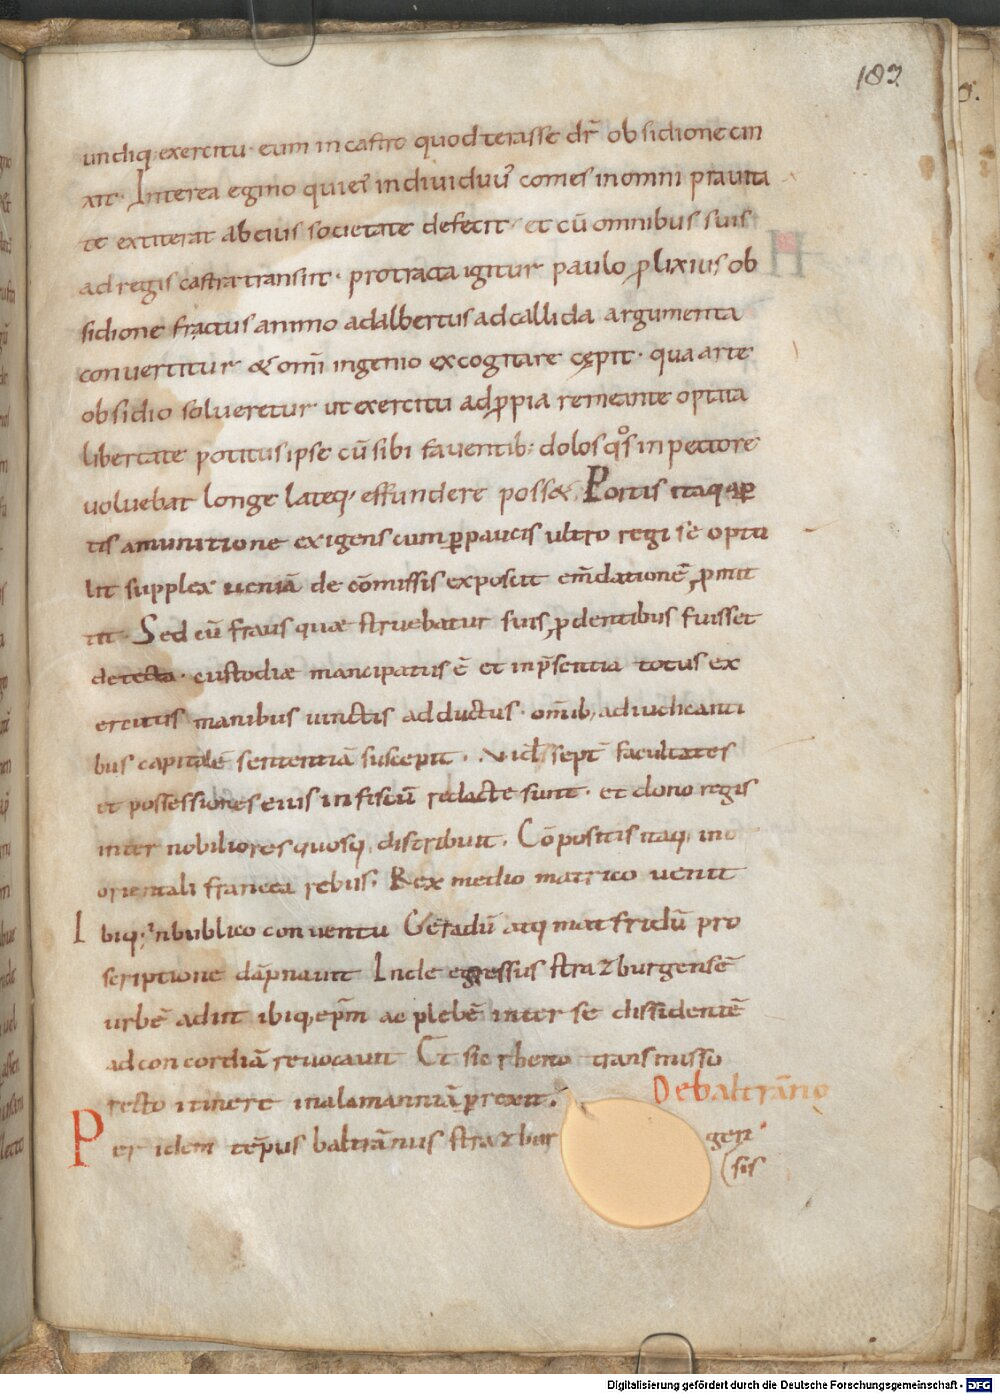 183
undiq; exercitu· eum in castro quod terasse dr̄ obsidione cin
xit· Interea egino qui ei' individuu' comes in omni pravita
te extiterat ab eius societate defecit· et cū omnibus suis
ad regis castra transiit· protracta igitur paulo ꝓlixius ob
sidione fractus animo adalbertus ad callida argumenta
convertitur & om̄i ingenio excogitare cępit· qua arte
obsidio solveretur ut exercitu ad ꝓpia remeante optata
libertate potitus ipse cū sibi faventib; dolos q̊s in pectore
voluebat longe lateq; effundere poss&. Portis itaq; aꝑ
tis a munitione exigens cum ꝑpaucis ultro regi se optu
lit supplex veniā de cōmissis exposcit em̄dationē ꝓmit
tit· Sed cū fraus quæ struebatur suis ꝓdentibus fuisset
detecta· custodiæ mancipatus ē et in p̄sentia totus ex
ercitus manibus vinctis adductus· om̄ib; adiudicanti
bus capitalē sententiā suscepit· v id' sept' facultates
et possessiones eius in fiscū redacte sunt· et dono regis
inter nobiliores quosq; distribuit. Cōpositis itaq; in
orientali francea rebus. Rex medio matrico venit
Ibiq; in bublico conventu Geradū atq; matfridū pro
scriptione dāpnavit Inde egressus strazburgensē
urbē adiit ibiq; ep̄m ac plebē inter se dissidentē
ad concordiā revocavit Et sic rheno transmisso
recto itinere in alamanniā ꝑrexit.
De baltrāno
Per idem tēpus baltrāmus strazbur gen
sis
Digitalisierung gefördert durch die Deutsche Forschungsgemeinschaft - DFG